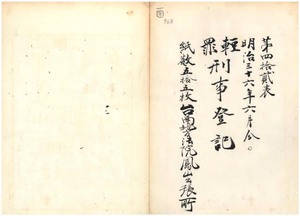 第四拾貳表
明治三十六年六月分。
輕罪刑事登記
紙数五拾五枚
台南地方法院鳳山出張所